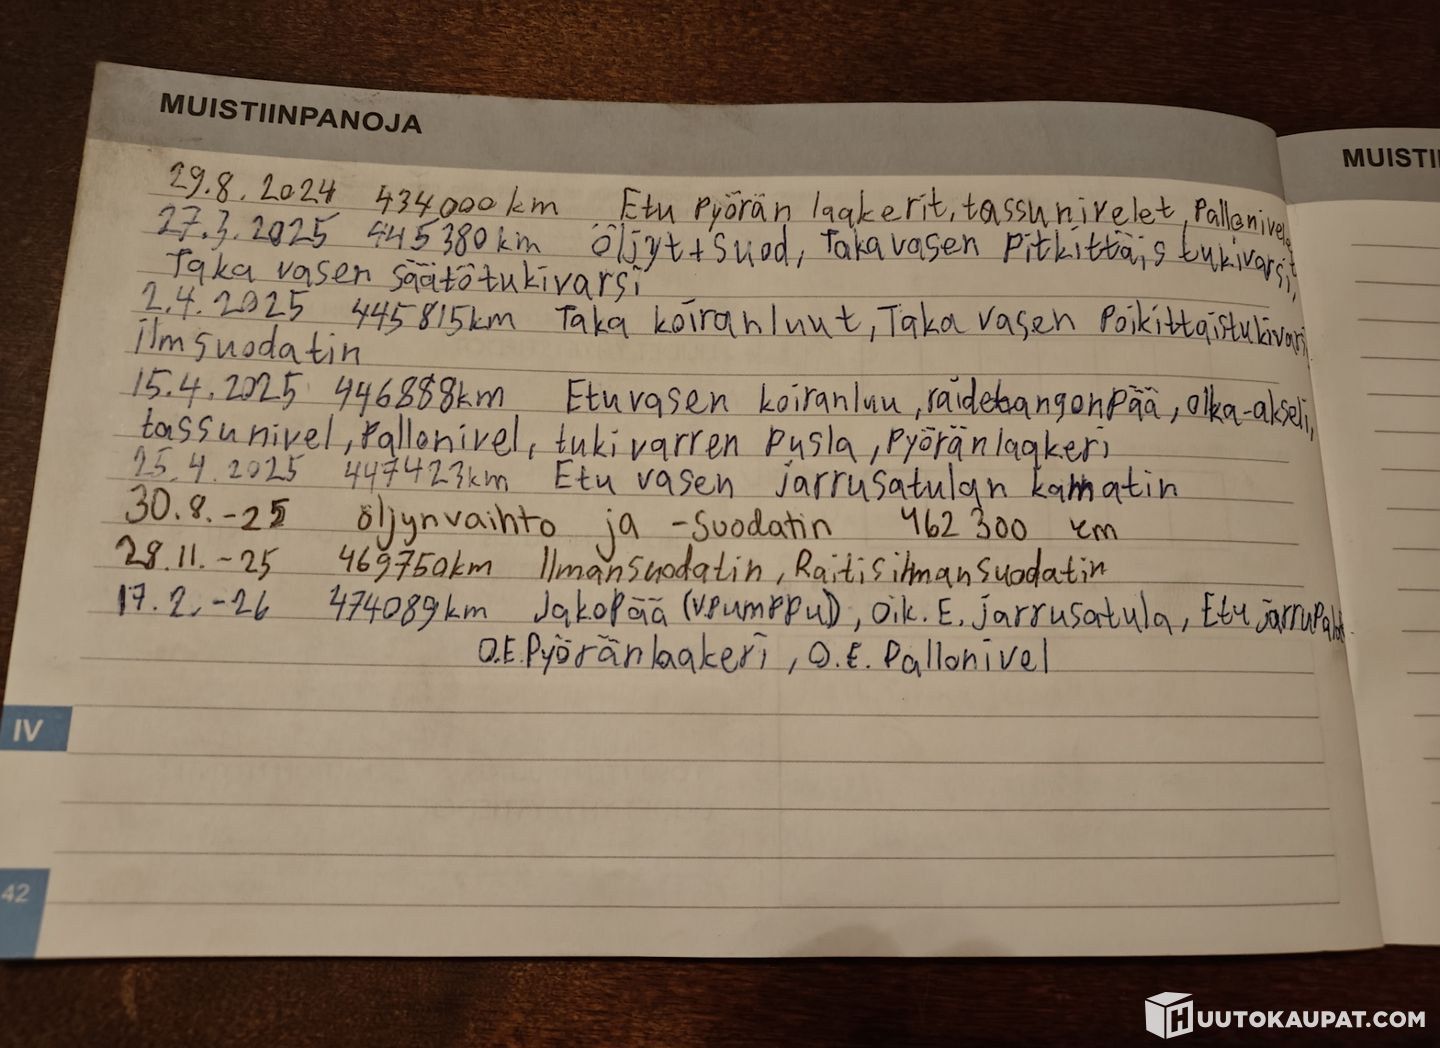 MUISTIINPANOJA
MUISTI
29.8.2024 434000km Etu Pyörän laakerit, tassunivelet, Pallonivelet
27.3.2025 445380km Öljyt + Suod, Taka vasen Pitkittäis tukivarsi,
Taka vasen säätötukivarsi
2.4.2025 445815km Taka koiranluut, Taka vasen Poikittaistukivarsi
ilmsuodatin
15.4.2025 446888km Etuvasen koiranluu, raidetangonpää, olka-akseli,
tassunivel, Pallonivel, tukivarren pusla, pyöränlaakeri
25.4.2025 447423km Etu vasen jarrusatulan kamatin
30.8.-25 öljynvaihto ja -suodatin 462 300 km
28.11.-25 469750km Ilmansuodatin, Raitisilmansuodatin
17.2.-26 474089km Jakopää (VPumppu), Oik. E. jarrusatula, Etu jarrupalat
O.E. Pyöränlaakeri, O.E. Pallonivel
IV
42
HUUTOKAUPAT.COM